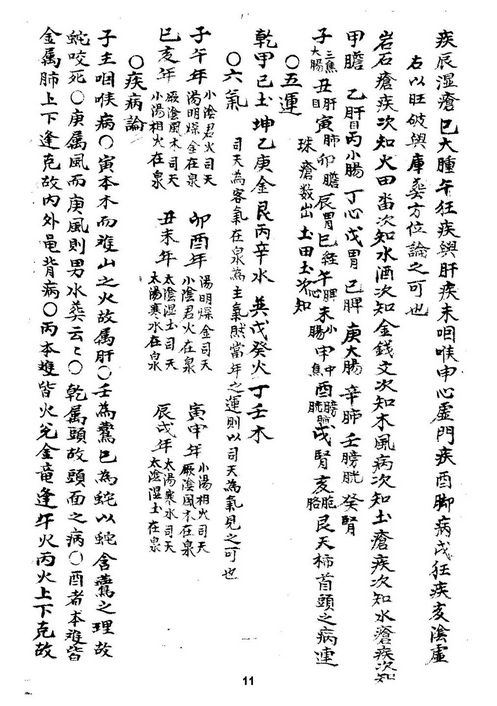 疾辰湿瘡巳大腫午狂疾與肝疾未咽喉申心虚門疾酉脚病戌狂疾亥陰虚
右以旺破與庫葬方位論之可也
岩石瘡疾次知火田畓次知水酒次知金錢文次知木風病次知土瘡疾次知水瘡疾次知
甲膽 乙肝目丙小腸 丁心戊胃 己脾 庚大腸 辛肺壬膀胱癸腎
子三焦大腸丑肝目寅肺卯膽辰胃巳午脾未小腸申中焦酉膀胱戌腎亥胞胳艮天柿首頭之病連
珠瘡数出土田土次知
○五運
乾甲己土坤乙庚金艮丙辛水巽戊癸火丁壬木
○六氣 司天為客氣在泉為主氣然當年之運則以司天為氣見之可也
子午年 少陰君火司天 湯明燥金在泉 卯酉年 湯明燥金司天 少陰君火在泉 寅申年 小陽相火司天 厥陰風木在泉
巳亥年 厥陰風木司天 小陽相火在泉 丑未年 太陰湿土司天 太陽寒水在泉 辰戌年 太陽寒水司天 太陰湿土在泉
○疾病論
子主咽喉病○寅本木而艮山之火故属肝○壬為鴦巳為蛇以蛇含鴦之理故
蛇咬死○庚属風而庚風則男水葬云々○乾属頭故頭面之病○酉者本雞皆
金属肺上下逢克故内外皆病○丙本雞皆火兊金竜逢午火丙火上下克故
11